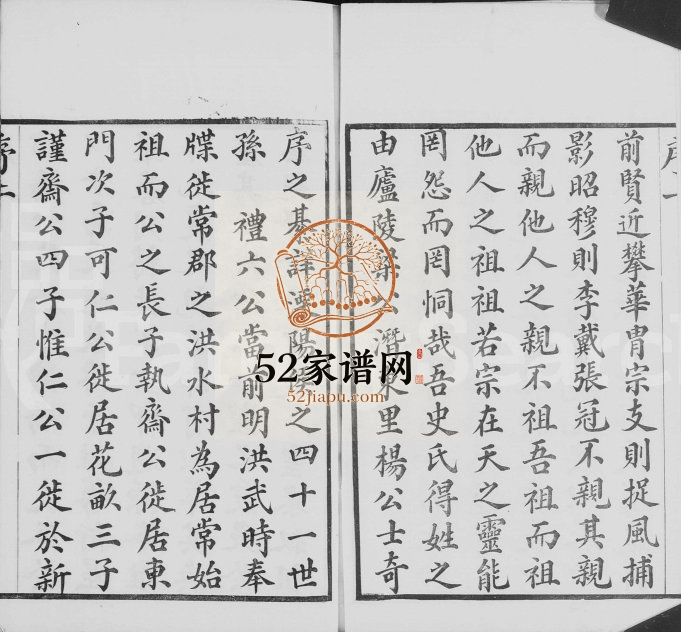 前賢近攀華胄宗支則捉風捕
影昭穆則李戴張冠不親其親
而親他人之親不祖吾祖而祖
他人之祖祖若宗在天之靈能
罔怨而罔恫哉吾史氏得姓之
由廬陵梁公潛東里楊公士奇
序之甚詳溧陽侯之四十一世
孫禮六公當前明洪武時奉
牒徙常郡之洪水村為居常始
祖而公之長子執齋公徙居東
門次子可仁公徙居花畝三子
謹齋公四子惟仁公一徙於新
52家谱网
52jiapu.com